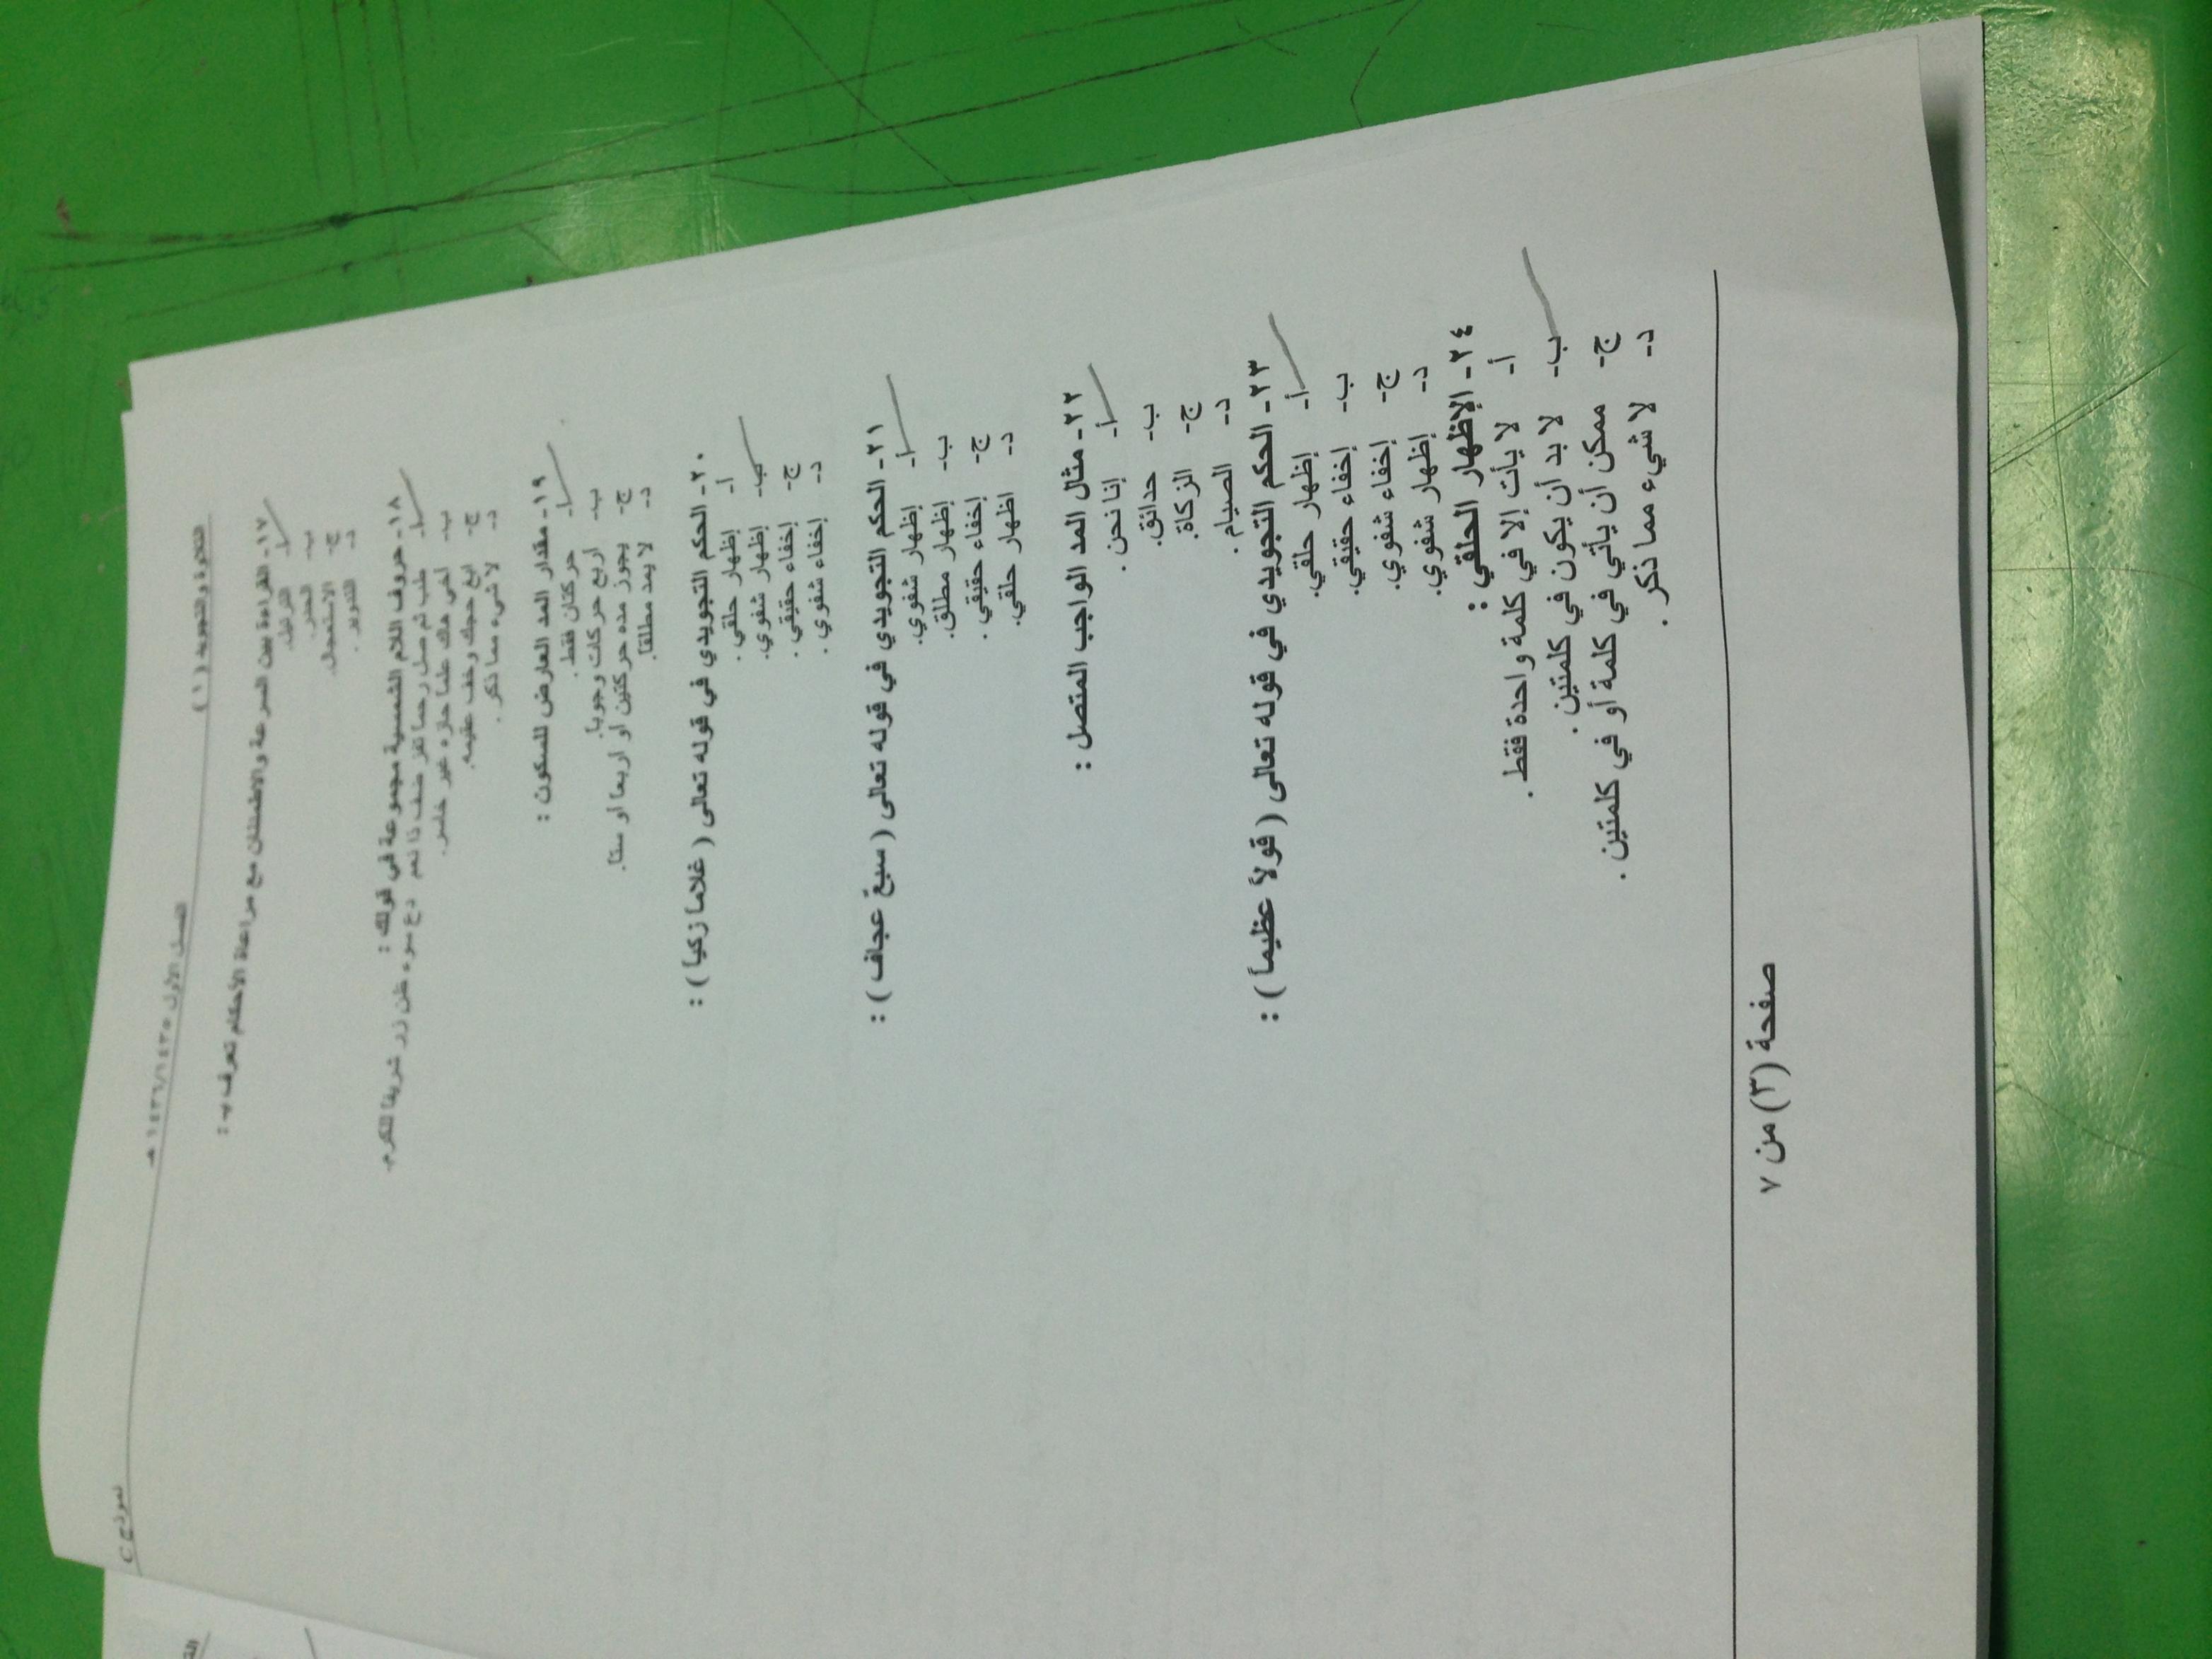 التلاوة والتجويد (١) الفصل الأول ١٤٣٥/١٤٣٦ هـ نموذج C
١٧- القراءة بين السرعة والاطمئنان مع مراعاة الأحكام تعرف بـ :
أ- الترتيل.
ب- الحدر.
ج- الاستعجال.
د- التدوير.
١٨- حروف اللام الشمسية مجموعة في قولك :
أ- طب ثم صل رحما تفز ضف ذا نعم دع سوء ظن زر شريفا للكرم.
ب- أخي هاك علما حازه غير خاسر.
ج- ابغ حجك وخف عقيمه.
د- لا شيء مما ذكر .
١٩- مقدار المد العارض للسكون :
أ- حركتان فقط.
ب- أربع حركات وجوبا.
ج- يجوز مده حركتين أو أربعا أو ستا.
د- لا يمد مطلقا.
٢٠- الحكم التجويدي في قوله تعالى ( غلاما زكيا ) :
أ- إظهار حلقي .
ب- إظهار شفوي.
ج- إخفاء حقيقي .
د- إخفاء شفوي .
٢١- الحكم التجويدي في قوله تعالى ( سبعٌ عجاف ) :
أ- إظهار شفوي.
ب- إظهار مطلق.
ج- إخفاء حقيقي .
د- اظهار حلقي.
٢٢- مثال المد الواجب المتصل :
أ- إنا نحن .
ب- حدائق.
ج- الزكاة.
د- الصيام .
٢٣- الحكم التجويدي في قوله تعالى ( قولاً عظيماً ) :
أ- إظهار حلقي.
ب- إخفاء حقيقي.
ج- إخفاء شفوي.
د- إظهار شفوي.
٢٤- الإظهار الحلقي :
أ- لا يأت إلا في كلمة واحدة فقط .
ب- لا بد أن يكون في كلمتين .
ج- ممكن أن يأتي في كلمة أو في كلمتين .
د- لا شيء مما ذكر .
صفحة (٣) من ٧